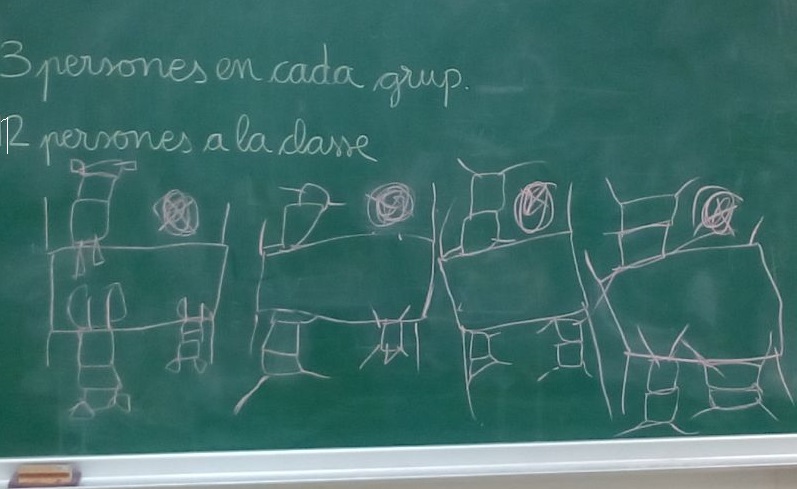 3 persones en cada grup.
12 persones a la classe